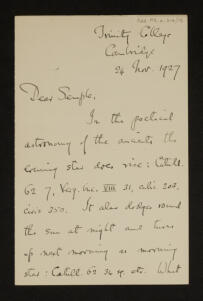 Trinity College
Cambridge
24 Nov. 1927
Dear Semple,
In the poetical
astronomy of the ancients the
evening star does rise: Catull.
62 7, Verg. buc. VIII 31, culic. 203,
ciris 350. It also dodges round
the sun at night and turns
up next morning as morning
star: Catull. 62 34 sq. etc. What